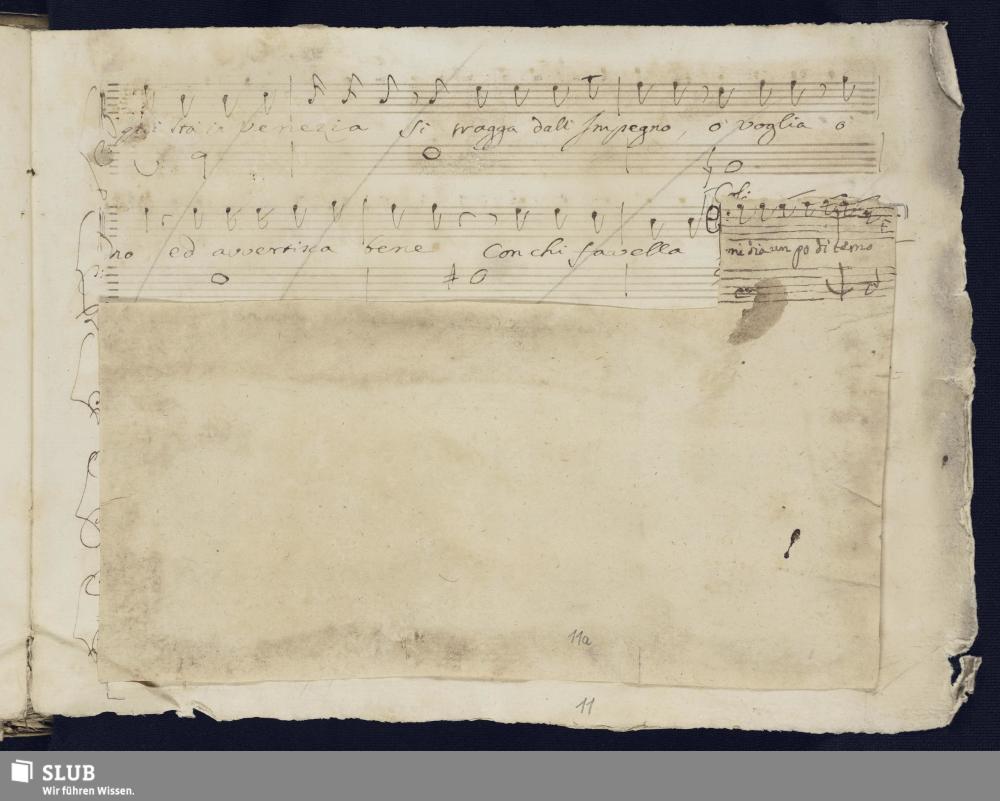 Venezia si tragga dall' Impegno, ò voglia ò
no ed avvertisca bene Con chi favella
mi dia un po di temo
11a
11
SLUB
Wir führen Wissen.